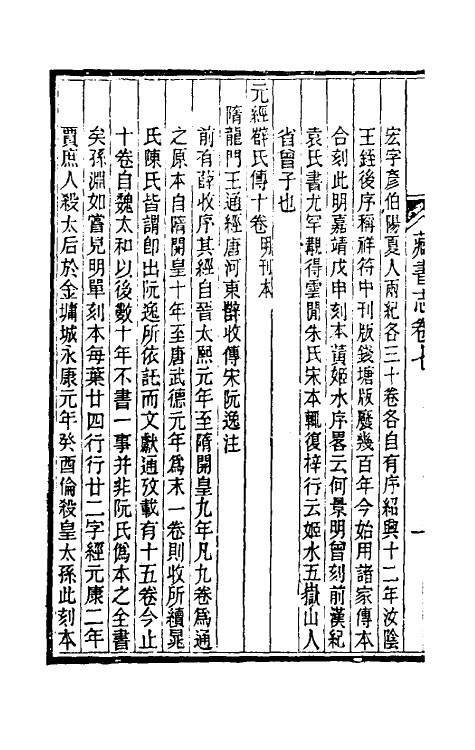 藏書志卷七
一
宏字彥伯陽夏人兩紀各三十卷各自有序紹興十二年汝陰
王銍後序稱祥符中刊版錢塘版廢幾百年今始用諸家傳本
合刻此明嘉靖戊申刻本黃姬水序畧云何景明曾刻前漢紀
袁氏書尤罕觀得雲閒朱氏宋本輒復梓行云姬水五嶽山人
省曾子也
元經薛氏傳十卷明刊本
隋龍門王通經唐河東薛收傳宋阮逸注
前有薛收序其經自晉太熙元年至隋開皇九年凡九卷爲通
之原本自隋開皇十年至唐武德元年爲末一卷則收所續晁
氏陳氏皆謂卽出阮逸所依託而文獻通攷載有十五卷今止
十卷自魏太和以後數十年不書一事并非阮氏僞本之全書
矣孫淵如嘗見明單刻本每葉廿四行行廿二字經元康二年
賈庶人殺太后於金墉城永康元年癸酉倫殺皇太孫此刻本